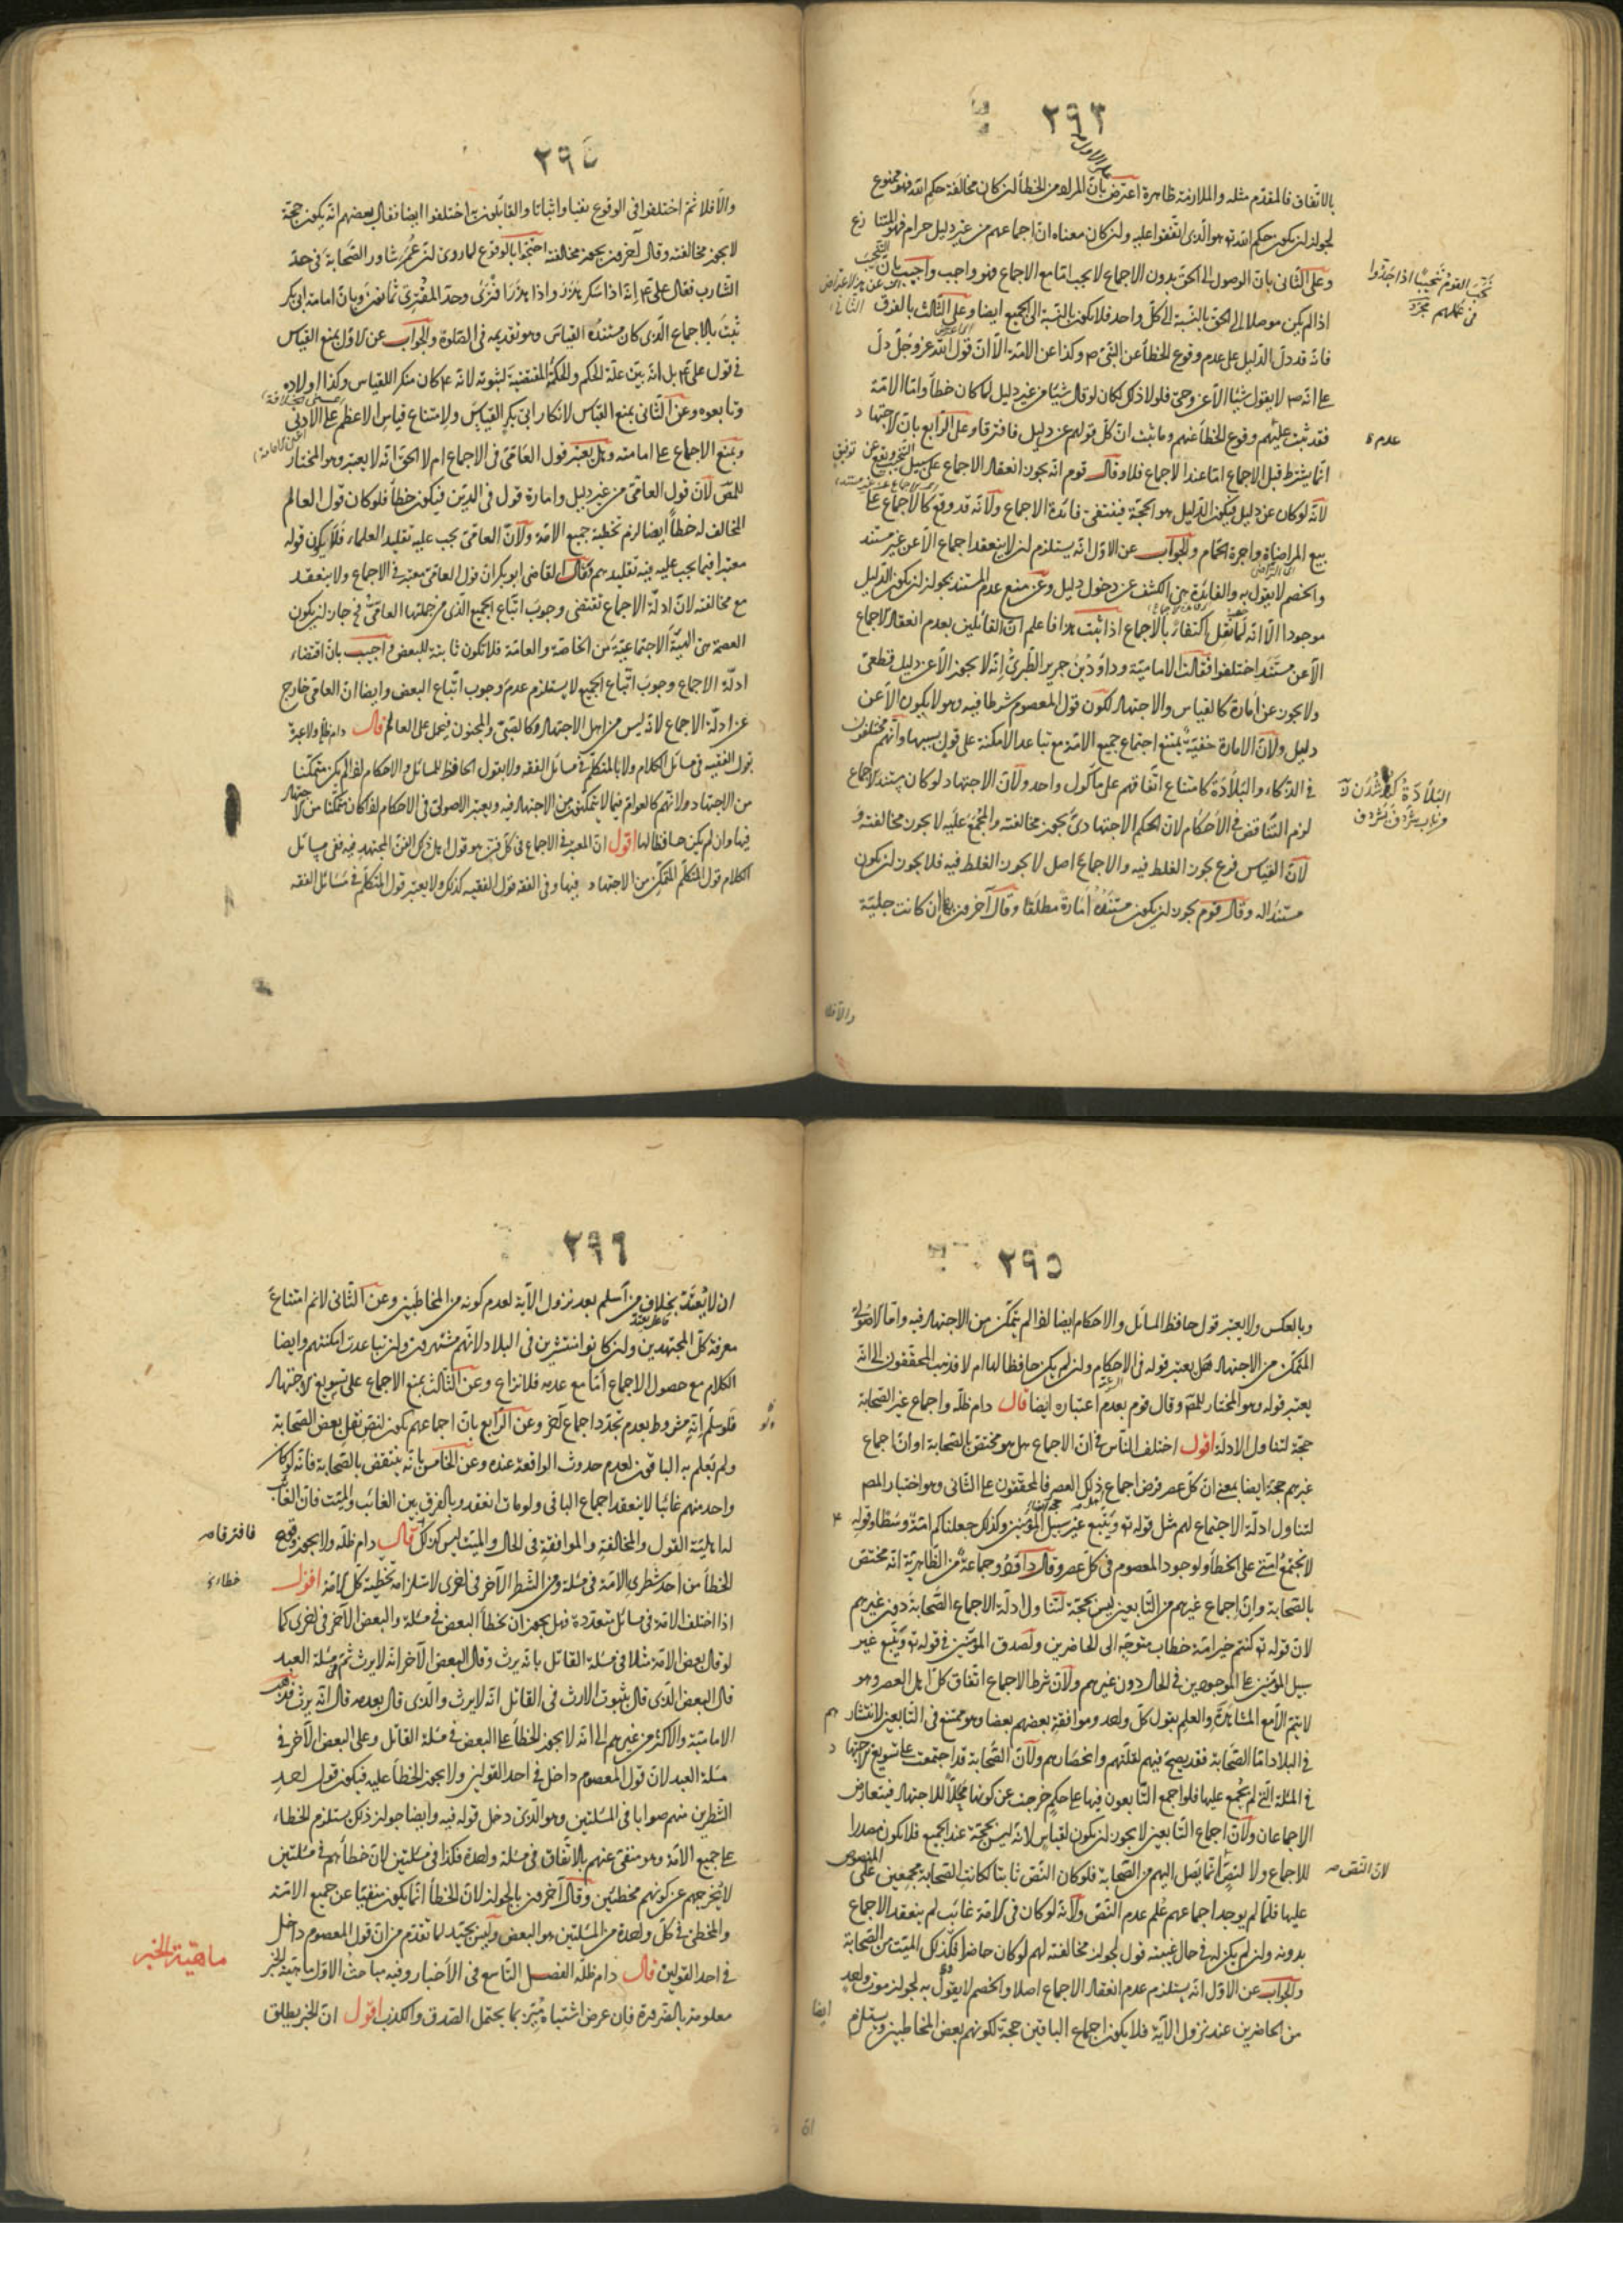 ٢٩٣
بالاتفاق فالمقدم مثله والملازمة ظاهرة اعترض بان المراد من الخطأ ان كان مخالفة حكم الله فهو ممنوع
لجواز ان يكون حكم الله تع هو الذى اتفقوا عليه وان كان معناه ان اجماعهم من غير دليل حرام فهو المتنازع
وعلى الثانى بان الوصول الى الحق بدون الاجماع لا يجب اما مع الاجماع فهو واجب واجيب بان
اذا لم يكن موصلا الى الحق بالنسبة الى كل واحد فلا يكون بالنسبة الى الجميع ايضا وعلى الثالث بالفرق
فانه قد دل الدليل على عدم وقوع الخطأ عن النبى ص وكذا عن الامة الا ان قول الله عز وجل دل
على انه ص لا يقول شيئا الا عن وحى فلولا ذلك لكان لو قال شيئا من غير دليل لما كان خطأ واما الامة
فقد ثبت عليهم وقوع الخطأ عنهم وما ثبت ان كل قولهم عن دليل فافترقا وعلى الرابع بان الاجتهاد
انما يشترط قبل الاجماع اما عند الاجماع فلا وقال قوم انه يجوز انعقاد الاجماع على سبيل
لانه لو كان عن دليل فيكون الدليل هو الحجة فينتفى فائدة الاجماع ولانه قد وقع كالاجماع على
بيع المراضاة واجرة الحمام والجواب عن الاول انه يستلزم ان لا ينعقد اجماع الا عن غير مستند
والخصم لا يقول به والفائدة هى الكشف عن دخول دليل وعن منع عدم المستند بجواز ان يكون الدليل
موجودا الا انه لم ينقل اكتفاء بالاجماع اذا ثبت هذا فاعلم ان القائلين بعدم انعقاد الاجماع
الا عن مستند اختلفوا فقالت الامامية وداود بن جرير الطبرى انه لا يجوز الا عن دليل قطعى
ولا يجوز عن امارة كالقياس والاجتهاد لكون قول المعصوم شرطا فيه وهو لا يكون الا عن
دليل ولان الامارة خفية يمتنع اجتماع جميع الامة مع تباعد الامكنة على قول بسببها وانهم مختلفون
فى الذكاء والبلادة كامتناع اتفاقهم على مأكول واحد ولان الاجتهاد لو كان مستند الاجماع
لزم التناقض فى الاحكام لان الحكم الاجتهادى يجوز مخالفته والمجمع عليه لا يجوز مخالفته و
لان القياس فرع يجوز الغلط فيه والاجماع اصل لا يجوز الغلط فيه فلا يجوز ان يكون
مستندا له وقال قوم يجوز ان يكون مستنده امارة مطلقا وقال آخرون ان كانت جلية
عدم
البلادة
والافلا
٢٩٤
والا فلا ثم اختلفوا فى الوقوع نفيا واثباتا والقائلون اختلفوا ايضا فقال بعضهم انه يكون حجة
لا يجوز مخالفته وقال آخرون يجوز مخالفته احتجوا بالوقوع لما روى ان عمر شاور الصحابة فى حد
الشارب فقال على ع انه اذا سكر هذر واذا هذر افترى وحد المفترى ثمانون وبان امامة ابى بكر
ثبت بالاجماع الذى كان مستنده القياس وهو تقديمه فى الصلوة والجواب عن الاول بمنع القياس
فى قول على ع بل انه بين علة الحكم والحكم المقتضية لثبوته لانه ع كان منكرا للقياس وكذا اولاده
وتابعوه وعن الثانى بمنع القياس لانكار ابى بكر القياس ولامتناع قياس الاعظم على الادنى
وبمنع الاجماع على امامته وهل يعتبر قول العامى فى الاجماع ام لا الحق انه لا يعتبر وهو المختار
للمص لان قول العامى من غير دليل وامارة قول فى الدين فيكون خطأ فلو كان قول العالم
المخالف له خطأ ايضا لزم تخطية جميع الامة ولان العامى يجب عليه تقليد العلماء فلا يكون قوله
معتبرا فيما يجب عليه فيه تقليدهم وقال القاضى ابو بكر ان قول العامى معتبر فى الاجماع ولا ينعقد
مع مخالفته لان ادلة الاجماع تقتضى وجوب اتباع الجميع الذى من جملتها العامى فجاز ان يكون
العصمة من الهيئة الاجتماعية من الخاصة والعامة فلا تكون ثابتة للبعض اجيب بان اقتضاء
ادلة الاجماع وجوب اتباع الجميع لا يستلزم عدم وجوب اتباع البعض وايضا ان العامى خارج
عن ادلة الاجماع لانه ليس من اهل الاجتهاد وكالصبى والمجنون فيحمل على العالم قال دام ظله ولا عبرة
بقول الفقيه فى مسائل الكلام ولا بالمتكلم فى مسائل الفقه ولا بقول الحافظ للمسائل والاحكام اذا لم يكن متمكنا
من الاجتهاد ولانهم كالعوام فيما لا يتمكنون من الاجتهاد فيه ويعتبر الاصولى فى الاحكام اذا كان متمكنا من الاجتهاد
فيها وان لم يكن حافظا لها اقول ان المعتبر فى الاجماع فى كل فن هو قول اهل ذلك الفن المجتهد فيه ففى مسائل
الكلام قول المتكلم المتمكن من الاجتهاد فيها وفى الفقه قول الفقيه كذلك ولا يعتبر قول المتكلم فى مسائل الفقه
٢٩٥
وبالعكس ولا يعتبر قول حافظ المسائل والاحكام ايضا اذا لم يتمكن من الاجتهاد فيه واما الاصولى
المتمكن من الاجتهاد فهل يعتبر قوله فى الاحكام وان لم يكن حافظا لها ام لا فذهب المحققون الى انه
يعتبر قوله وهو المختار للمص وقال قوم بعدم اعتباره ايضا قال دام ظله واجماع غير الصحابة
حجة لتناول الادلة اقول اختلف الناس فى ان الاجماع هل هو مختص بالصحابة او ان اجماع
غيرهم حجة ايضا بمعنى ان كل عصر فرض اجماع ذلك العصر فالمحققون على الثانى وهو اختيار المص
لتناول ادلة الاجتماع لهم مثل قوله تع ويتبع غير سبيل المؤمنين وكذلك جعلناكم امة وسطا وقوله ع
لا تجتمع امتى على الخطأ ولوجود المعصوم فى كل عصر وقال داود وجماعة من الظاهرية انه مختص
بالصحابة وان اجماع غيرهم من التابعين ليس بحجة لتناول ادلة الاجماع الصحابة دون غيرهم
لان قوله تع كنتم خير امة خطاب متوجه الى الحاضرين ولصدق المؤمنين فى قوله تع ويتبع غير
سبيل المؤمنين على الموجودين فى الحال دون غيرهم ولان شرط الاجماع اتفاق كل اهل العصر وهو
لا يتم الا مع المشاهدة والعلم بقول كل واحد وموافقة بعضهم بعضا وهو ممتنع فى التابعين لانتشارهم
فى البلاد اما الصحابة فقد يصح فيهم لقلتهم وانحصارهم ولان الصحابة قد اجتمعت على تسويغ الاجتهاد
فى المسئلة التى لم يجمع عليها فلو اجمع التابعون فيها على حكم خرجت عن كونها محلا للاجتهاد فيتعارض
الاجماعان ولان اجماع التابعين لا يجوز ان يكون لقياس لانه ليس بحجة عند الجميع فلا يكون مصدرا
للاجماع ولا لنص انما يصل اليهم من الصحابة فلو كان النص ثابتا لكانت الصحابة مجمعين على
عليها فلما لم يوجد اجماعهم علم عدم النص ولانه لو كان فى الامة غائب لم ينعقد الاجماع
بدونه وان لم يكن له فى حال غيبته قول لجواز مخالفته لهم لو كان حاضرا فكذلك الميت من الصحابة
والجواب عن الاول انه يستلزم عدم انعقاد الاجماع اصلا والخصم لا يقول به لجواز موت واحد
من الحاضرين عند نزول الآية فلا يكون اجماع الباقين حجة لكونهم بعض المخاطبين ويستلزم
ايضا
لان النص
٢٩٦
ان لا يعتد بخلاف من اسلم بعد نزول الآية لعدم كونه من المخاطبين وعن الثانى لا نم امتناع
معرفة كل المجتهدين وان كانوا منتشرين فى البلاد لانهم مشتهرون وان تباعدت امكنتهم وايضا
الكلام مع حصول الاجماع اما مع عدمه فلا نزاع وعن الثالث بمنع الاجماع على تسويغ الاجتهاد
فلو سلم انه مشروط بعدم تجدد اجماع آخر وعن الرابع بان اجماعهم يكون لنص نقل بعض الصحابة
ولم يعلم به الباقون لعدم حدوث الواقعة عنده وعن الخامس بانه ينتقض بالصحابة فانه لو كان
واحد منهم غائبا لا ينعقد اجماع الباقى ولو مات انعقد وبالفرق بين الغائب والميت فان الغائب
له اهلية القول والمخالفة والموافقة فى الحال والميت ليس كذلك قال دام ظله ولا يجوز وقوع
الخطأ من احد شطرى الامة فى مسئلة ومن الشطر الآخر فى اخرى لاستلزامه تخطية كل الامة اقول
اذا اختلف الامة فى مسائل متعددة فهل يجوز ان يخطأ البعض فى مسئلة والبعض الآخر فى اخرى كما
لو قال بعض الامة مثلا فى مسئلة القاتل بانه يرث وقال البعض الآخر انه لا يرث ثم فى مسئلة العبد
قال البعض الذى قال بثبوت الارث فى القاتل انه لا يرث والذى قال بعدمه قال انه يرث فذهب
الامامية والاكثر من غيرهم الى انه لا يجوز الخطأ على البعض فى مسئلة القاتل وعلى البعض الآخر فى
مسئلة العبد لان قول المعصوم داخل فى احد القولين ولا يجوز الخطأ عليه فيكون قول احد
الشطرين منهم صوابا فى المسئلتين وهو الذى دخل قوله فيه وايضا جواز ذلك يستلزم الخطاء
على جميع الامة وهو منفى عنهم بالاتفاق فى مسئلة واحدة فكذا فى مسئلتين لان خطأهم فى مسئلتين
لا يخرجهم عن كونهم مخطئين وقال آخرون بالجواز لان الخطأ انما يكون منفيا عن جميع الامة
والمخطئ فى كل واحدة من المسئلتين هو البعض وليس بجيد لما تقدم من ان قول المعصوم داخل
فى احد القولين قال دام ظله الفصل التاسع فى الاخبار وفيه مباحث الاول ماهية الخبر
معلومة بالضرورة فان عرض اشتباه ميز بما يحتمل الصدق والكذب اقول ان الخبر يطلق
فافترقا
خطاء
ماهية الخبر